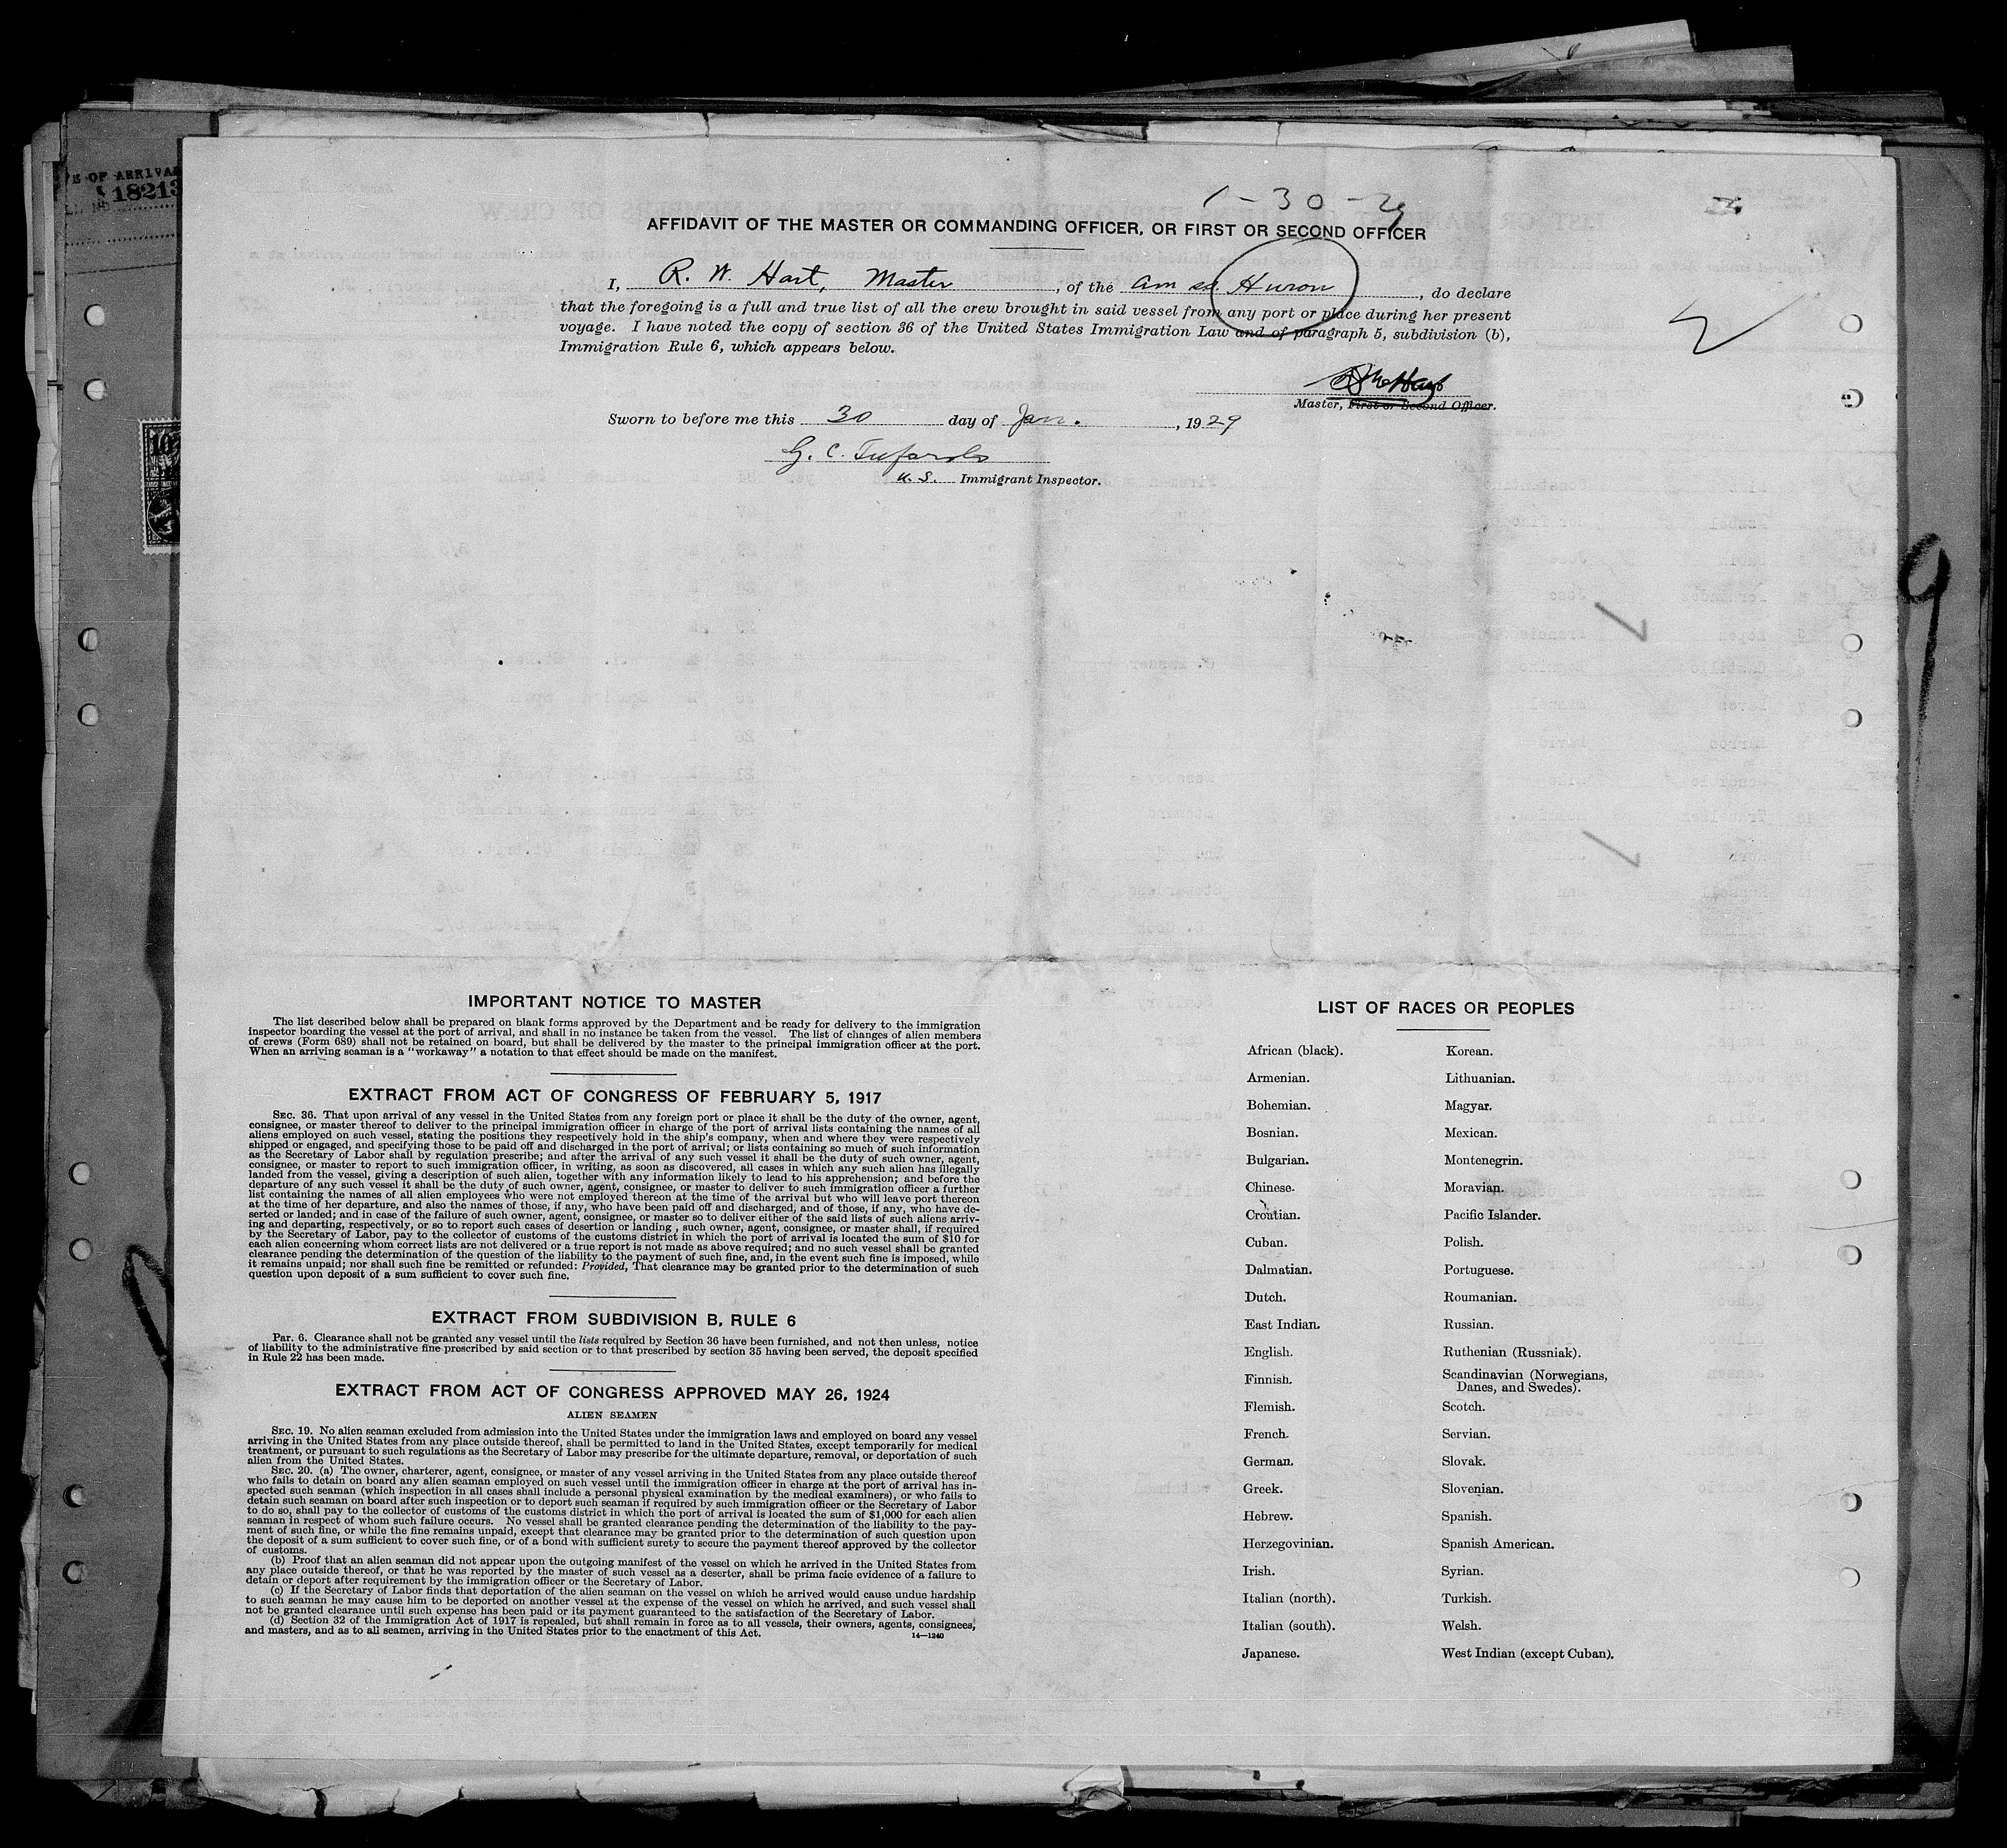 E OF ARRIVAL
18213
1-30-29
AFFIDAVIT OF THE MASTER OR COMMANDING OFFICER, OR FIRST OR SECOND OFFICER
I, R. W. Hart, Master, of the Am ss. Huron, do declare
that the foregoing is a full and true list of all the crew brought in said vessel from any port or place during her present
voyage. I have noted the copy of section 36 of the United States Immigration Law and of paragraph 5, subdivision (b),
Immigration Rule 6, which appears below.
Master, First or Second Officer.
Sworn to before me this 30 day of Jan., 1929
G. C.
U. S. Immigrant Inspector.
10
9
IMPORTANT NOTICE TO MASTER
The list described below shall be prepared on blank forms approved by the Department and be ready for delivery to the immigration
inspector boarding the vessel at the port of arrival, and shall in no instance be taken from the vessel. The list of changes of alien members
of crews (Form 689) shall not be retained on board, but shall be delivered by the master to the principal immigration officer at the port.
When an arriving seaman is a "workaway" a notation to that effect should be made on the manifest.
EXTRACT FROM ACT OF CONGRESS OF FEBRUARY 5, 1917
SEC. 36. That upon arrival of any vessel in the United States from any foreign port or place it shall be the duty of the owner, agent,
consignee, or master thereof to deliver to the principal immigration officer in charge of the port of arrival lists containing the names of all
aliens employed on such vessel, stating the positions they respectively hold in the ship's company, when and where they were respectively
shipped or engaged, and specifying those to be paid off and discharged in the port of arrival; or lists containing so much of such information
as the Secretary of Labor shall by regulation prescribe; and after the arrival of any such vessel it shall be the duty of such owner, agent,
consignee, or master to report to such immigration officer, in writing, as soon as discovered, all cases in which any such alien has illegally
landed from the vessel, giving a description of such alien, together with any information likely to lead to his apprehension; and before the
departure of any such vessel it shall be the duty of such owner, agent, consignee, or master to deliver to such immigration officer a further
list containing the names of all alien employees who were not employed thereon at the time of the arrival but who will leave port thereon
at the time of her departure, and also the names of those, if any, who have been paid off and discharged, and of those, if any, who have de-
serted or landed; and in case of the failure of such owner, agent, consignee, or master so to deliver either of the said lists of such aliens arriv-
ing and departing, respectively, or so to report such cases of desertion or landing , such owner, agent, consignee, or master shall, if required
by the Secretary of Labor, pay to the collector of customs of the customs district in which the port of arrival is located the sum of $10 for
each alien concerning whom correct lists are not delivered or a true report is not made as above required; and no such vessel shall be granted
clearance pending the determination of the question of the liability to the payment of such fine, and, in the event such fine is imposed, while
it remains unpaid; nor shall such fine be remitted or refunded: Provided, That clearance may be granted prior to the determination of such
question upon deposit of a sum sufficient to cover such fine.
EXTRACT FROM SUBDIVISION B, RULE 6
Par. 6. Clearance shall not be granted any vessel until the lists required by Section 36 have been furnished, and not then unless, notice
of liability to the administrative fine prescribed by said section or to that prescribed by section 35 having been served, the deposit specified
in Rule 22 has been made.
EXTRACT FROM ACT OF CONGRESS APPROVED MAY 26, 1924
ALIEN SEAMEN
SEC. 19. No alien seaman excluded from admission into the United States under the immigration laws and employed on board any vessel
arriving in the United States from any place outside thereof, shall be permitted to land in the United States, except temporarily for medical
treatment, or pursuant to such regulations as the Secretary of Labor may prescribe for the ultimate departure, removal, or deportation of such
alien from the United States.
SEC. 20. (a) The owner, charterer, agent, consignee, or master of any vessel arriving in the United States from any place outside thereof
who fails to detain on board any alien seaman employed on such vessel until the immigration officer in charge at the port of arrival has in-
spected such seaman (which inspection in all cases shall include a personal physical examination by the medical examiners), or who fails to
detain such seaman on board after such inspection or to deport such seaman if required by such immigration officer or the Secretary of Labor
to do so, shall pay to the collector of customs of the customs district in which the port of arrival is located the sum of $1,000 for each alien
seaman in respect of whom such failure occurs. No vessel shall be granted clearance pending the determination of the liability to the pay-
ment of such fine, or while the fine remains unpaid, except that clearance may be granted prior to the determination of such question upon
the deposit of a sum sufficient to cover such fine, or of a bond with sufficient surety to secure the payment thereof approved by the collector
of customs.
(b) Proof that an alien seaman did not appear upon the outgoing manifest of the vessel on which he arrived in the United States from
any place outside thereof, or that he was reported by the master of such vessel as a deserter, shall be prima facie evidence of a failure to
detain or deport after requirement by the immigration officer or the Secretary of Labor.
(c) If the Secretary of Labor finds that deportation of the alien seaman on the vessel on which he arrived would cause undue hardship
to such seaman he may cause him to be deported on another vessel at the expense of the vessel on which he arrived, and such vessel shall
not be granted clearance until such expense has been paid or its payment guaranteed to the satisfaction of the Secretary of Labor.
(d) Section 32 of the Immigration Act of 1917 is repealed, but shall remain in force as to all vessels, their owners, agents, consignees,
and masters, and as to all seamen, arriving in the United States prior to the enactment of this Act.
14—1240
LIST OF RACES OR PEOPLES
African (black). Korean.
Armenian. Lithuanian.
Bohemian. Magyar.
Bosnian. Mexican.
Bulgarian. Montenegrin.
Chinese. Moravian.
Croatian. Pacific Islander.
Cuban. Polish.
Dalmatian. Portuguese.
Dutch. Roumanian.
East Indian. Russian.
English. Ruthenian (Russniak).
Finnish. Scandinavian (Norwegians,
Danes, and Swedes).
Flemish. Scotch.
French. Servian.
German. Slovak.
Greek. Slovenian.
Hebrew. Spanish.
Herzegovinian. Spanish American.
Irish. Syrian.
Italian (north). Turkish.
Italian (south). Welsh.
Japanese. West Indian (except Cuban).